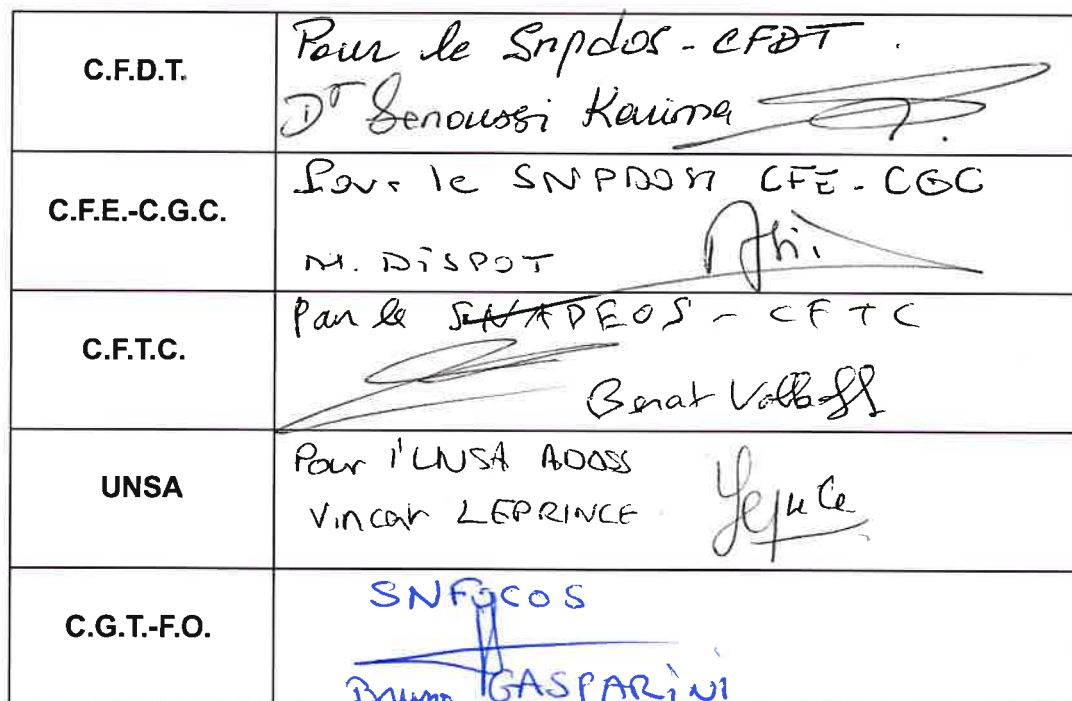 C.F.D.T.
Pour le Snpdos - CFDT.
Dr Senoussi Karima
C.F.E.-C.G.C.
Pour le SNPDOSM CFE - CGC
M. DISPOT
C.F.T.C.
Par le SNADEOS - CFTC
Benat
UNSA
Pour l'UNSA ADOSS
Vincent LEPRINCE
C.G.T.-F.O.
SNFOCOS
Bruno GASPARINI